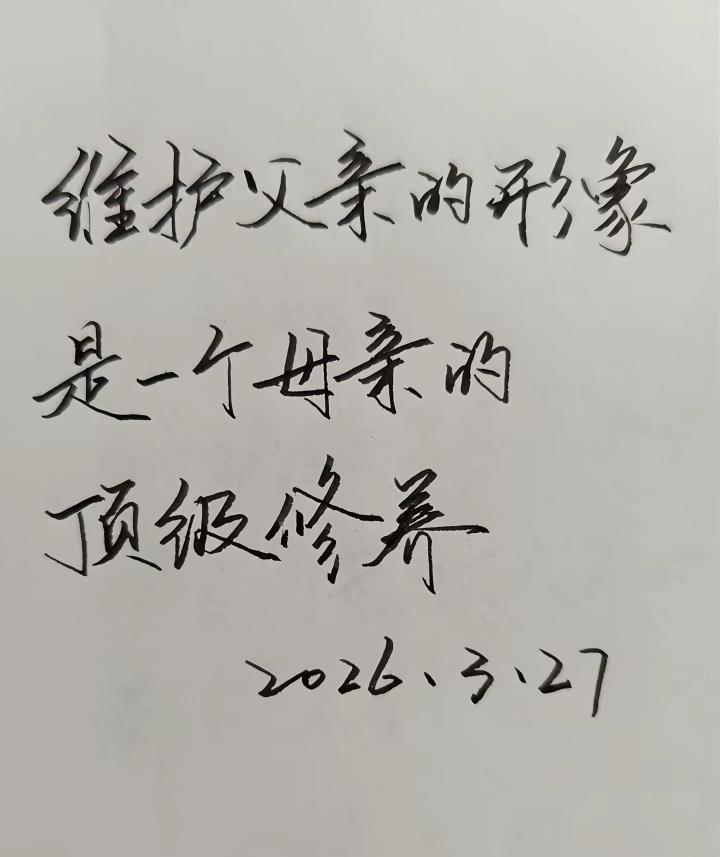 维护父亲的形象
是一个母亲的
顶级修养
2026、3、27